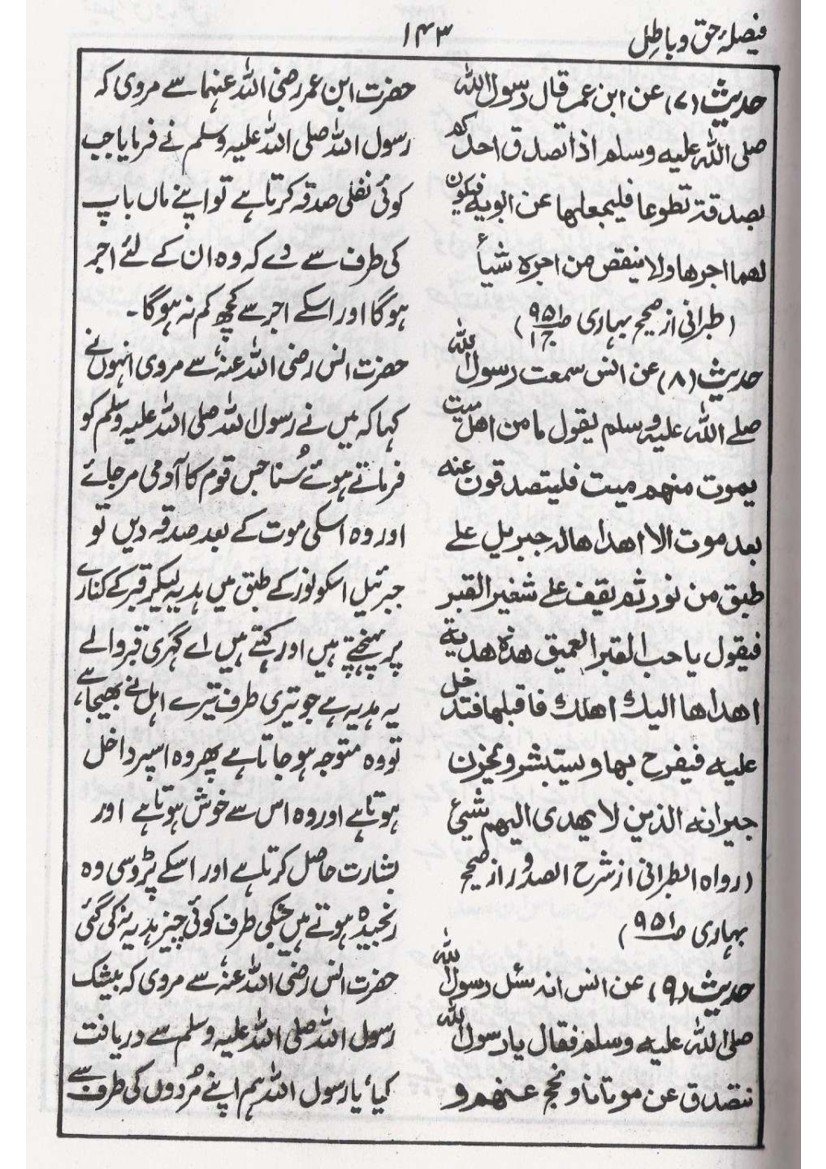 فیصلۂ حق و باطل
۱۴۳
حدیث (۷) عن ابن عمر قال رسول اللہ
صلی اللہ علیہ وسلم اذا تصدق احدکم
بصدقۃ تطوعا فلیجعلھا عن ابویہ فیکون
لھما اجرھا ولا ینقص من اجرہ شیأ
(طبرانی از صحیح بہاری ص ۹۵۱ ج ۱)
حدیث (۸) عن انس سمعت رسول اللہ
صلے اللہ علیہ وسلم یقول ما من اھل میت
یموت منھم میت فلیتصدقون عنہ
بعد موت الا اھداھا لہ جبریل علے
طبق من نور ثم یقف علے شغیر القبر
فیقول یا حب القبر العمیق ھذہ ھدیۃ
اھداھا الیک اھلک فاقبلھا فتدخل
علیہ فیفرح بھا ویستبشر ویحزن
جیرانہ الذین لا یھدی الیھم شیئ
(رواہ الطبرانی از شرح الصدور از صحیح
بہاری ص ۹۵۱)
حدیث (۹) عن انس انہ سئل رسول اللہ
صلی اللہ علیہ وسلم فقال یا رسول اللہ
نتصدق عن موتانا ونحج عنھم و
حضرت ابن عمر رضی اللہ عنہما سے مروی کہ
رسول اللہ صلی اللہ علیہ وسلم نے فرمایا جب
کوئی نفلی صدقہ کرتا ہے تو اپنے ماں باپ
کی طرف سے دے کہ وہ ان کے لئے اجر
ہوگا اور اسکے اجر سے کچھ کم نہ ہوگا۔
حضرت انس رضی اللہ عنہ، سے مروی انہوں نے
کہا کہ میں نے رسول اللہ صلی اللہ علیہ وسلم کو
فرماتے ہوئے سُنا جس قوم کا آدمی مر جائے
اور وہ اسکی موت کے بعد صدقہ دیں تو
جبرئیل اسکو نور کے طبق میں ہدیہ لیکر قبر کے کنارے
پر پہنچتے ہیں اور کہتے ہیں اے گہری قبر والے
یہ ہدیہ ہے جو تیری طرف تیرے اہل نے بھیجا ہے،
تو وہ متوجہ ہو جاتا ہے پھر وہ اسپر داخل
ہوتا ہے اور وہ اس سے خوش ہوتا ہے اور
بشارت حاصل کرتا ہے اور اسکے پڑوسی وہ
رنجیدہ ہوتے ہیں جنکی طرف کوئی چیز ہدیہ نہ کی گئی
حضرت انس رضی اللہ عنہ، سے مروی کہ بیشک
رسول اللہ صلی اللہ علیہ وسلم سے دریافت
کیا، یا رسول اللہ ہم اپنے مُردوں کی طرف سے